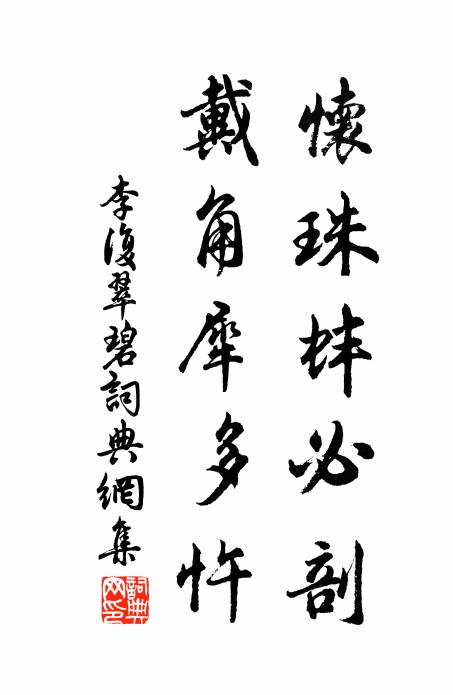 懷珠蚌必剖
戴角犀多忤
李復翠碧詞典網集
詞典網印